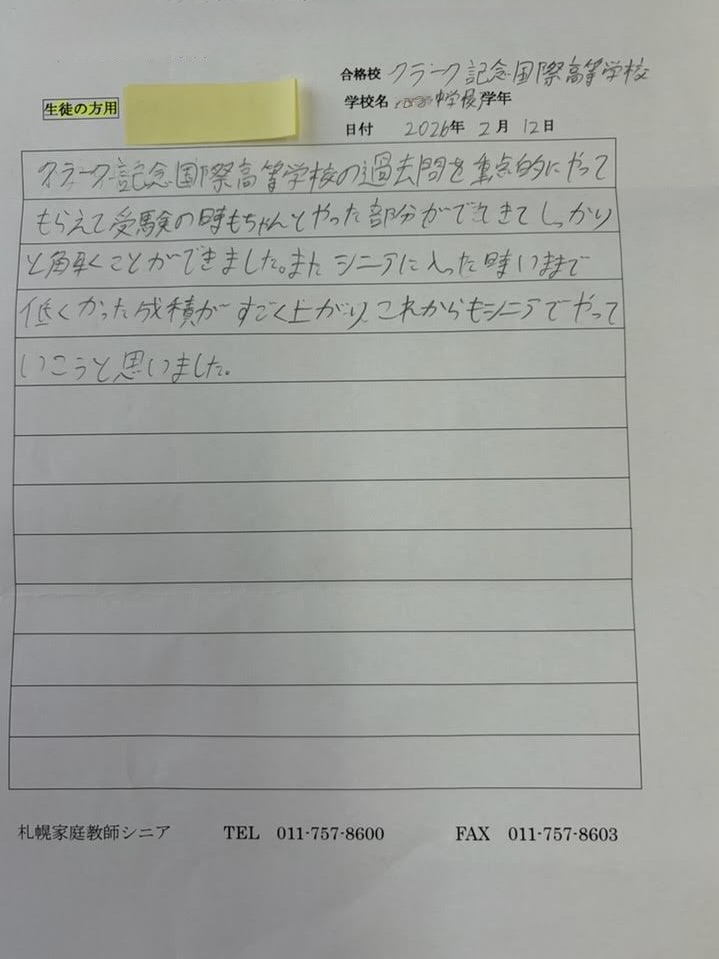 合格校 クラーク記念国際高等学校
生徒の方用
学校名 中学校 学年
日付 2026年 2月 12日
クラーク記念国際高等学校の過去問を重点的にやって
もらえて受験の時もちゃんとやった部分ができてきてしっかり
と解くことができました。また シニアに入った時いままで
低くかった成積がすごく上がり、これからもシニアでやって
いこうと思いました。
札幌家庭教師シニア TEL 011-757-8600 FAX 011-757-8603